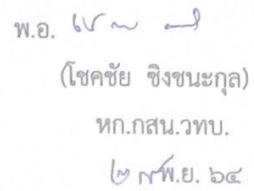 พ.อ.
(โชคชัย ชิงชนะกุล)
หก.กสน.วทบ.
พ.ย. ๖๔